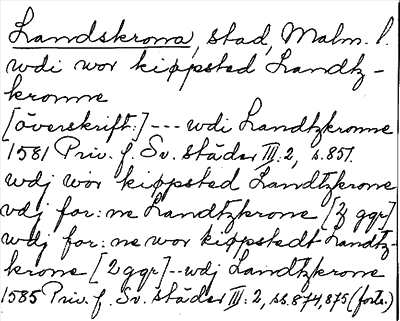 Landskrona, stad, Malm. l.
wdi wor kiøpsted Landtz-
kronne
[överskrift:] --- wdi Landtzkronne
1581 Priv. f. Sv. städer III: 2, s. 851.
wdj wor kiøpsted Landtzkrone
vdj for: ne Landtzkrone [2 ggr]
wdj for: ne wor kiøpstedt Landtz-
krone [2 ggr] -- wdj Landtzkrone
1585 Priv. f. Sv. städer III: 2, ss. 874, 875 (forts.)